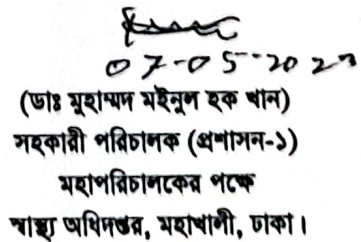 07-05-202
(ডাঃ মুহাম্মদ মইনুল হক খান)
সহকারী পরিচালক (প্রশাসন-১)
মহাপরিচালকের পক্ষে
স্বাস্থ্য অধিদপ্তর, মহাখালী, ঢাকা।